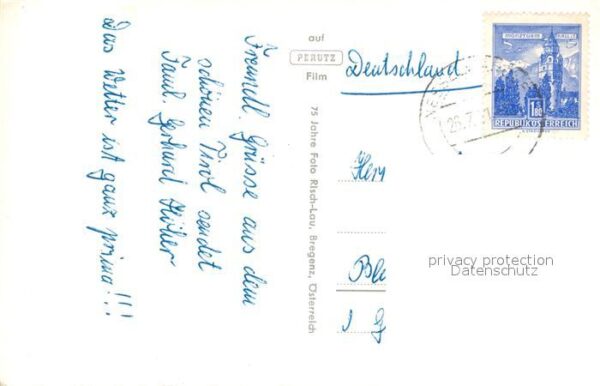 Freundl. Grüsse aus dem
schönen Tirol sendet
Faml. Gerhard
Das Wetter ist ganz prima!!!
auf
PERUTZ
Film
75 Jahre Foto Risch-Lau, Bregenz, Österreich
Deutschland
MÜNZTURM HALL I. T.
S 1.80
REPUBLIK ÖSTERREICH
Herr
privacy protection
Datenschutz